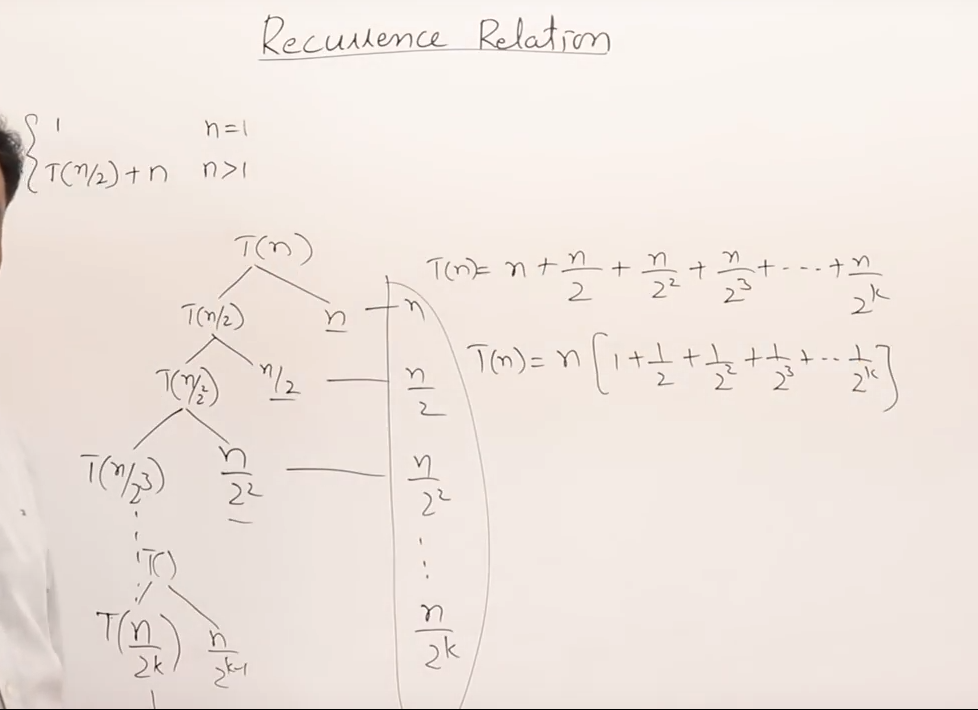 Recurrence Relation
{ 1 n=1
T(n/2)+n n>1
T(n)
T(n/2) n — n
T(n/2²) n/2 — n/2
T(n/2³) n/2² — n/2²
⋮
T()
T(n/2^k) n/2^(k-1) n/2^k
T(n)= n + n/2 + n/2² + n/2³ + ---- + n/2^k
T(n)= n [1 + 1/2 + 1/2² + 1/2³ + -- 1/2^k]